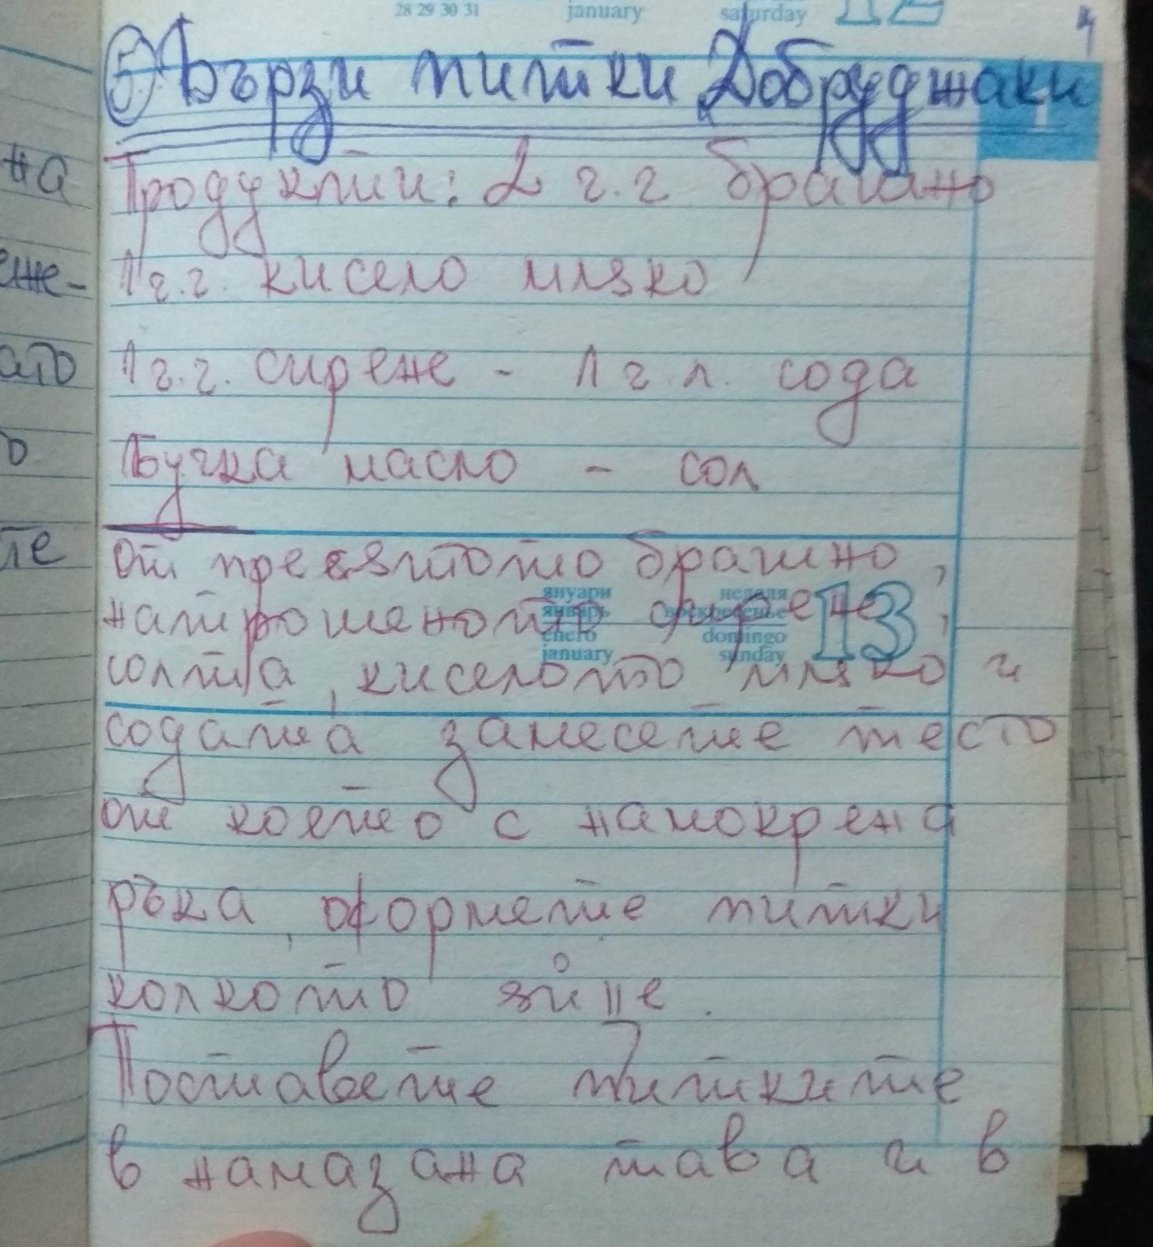 28 29 30 31 january saturday 12
4
5 Бързи питки Добруджаки
1
Продукти: 2 г.г брашно
1 г.г. кисело мляко
1 г.г. сирене - 1 г.л. сода
Бучка масло - сол
от пресятото брашно,
януари неделя
январь воскресенье 13
enero domingo
january sunday
натрошеното сирене,
солта, киселото мляко и
содата замесете тесто
от което с намокрена
ръка, оформете питки
колкото
Поставете питките
в намазана тава и в
на
ене-
ато
о
те